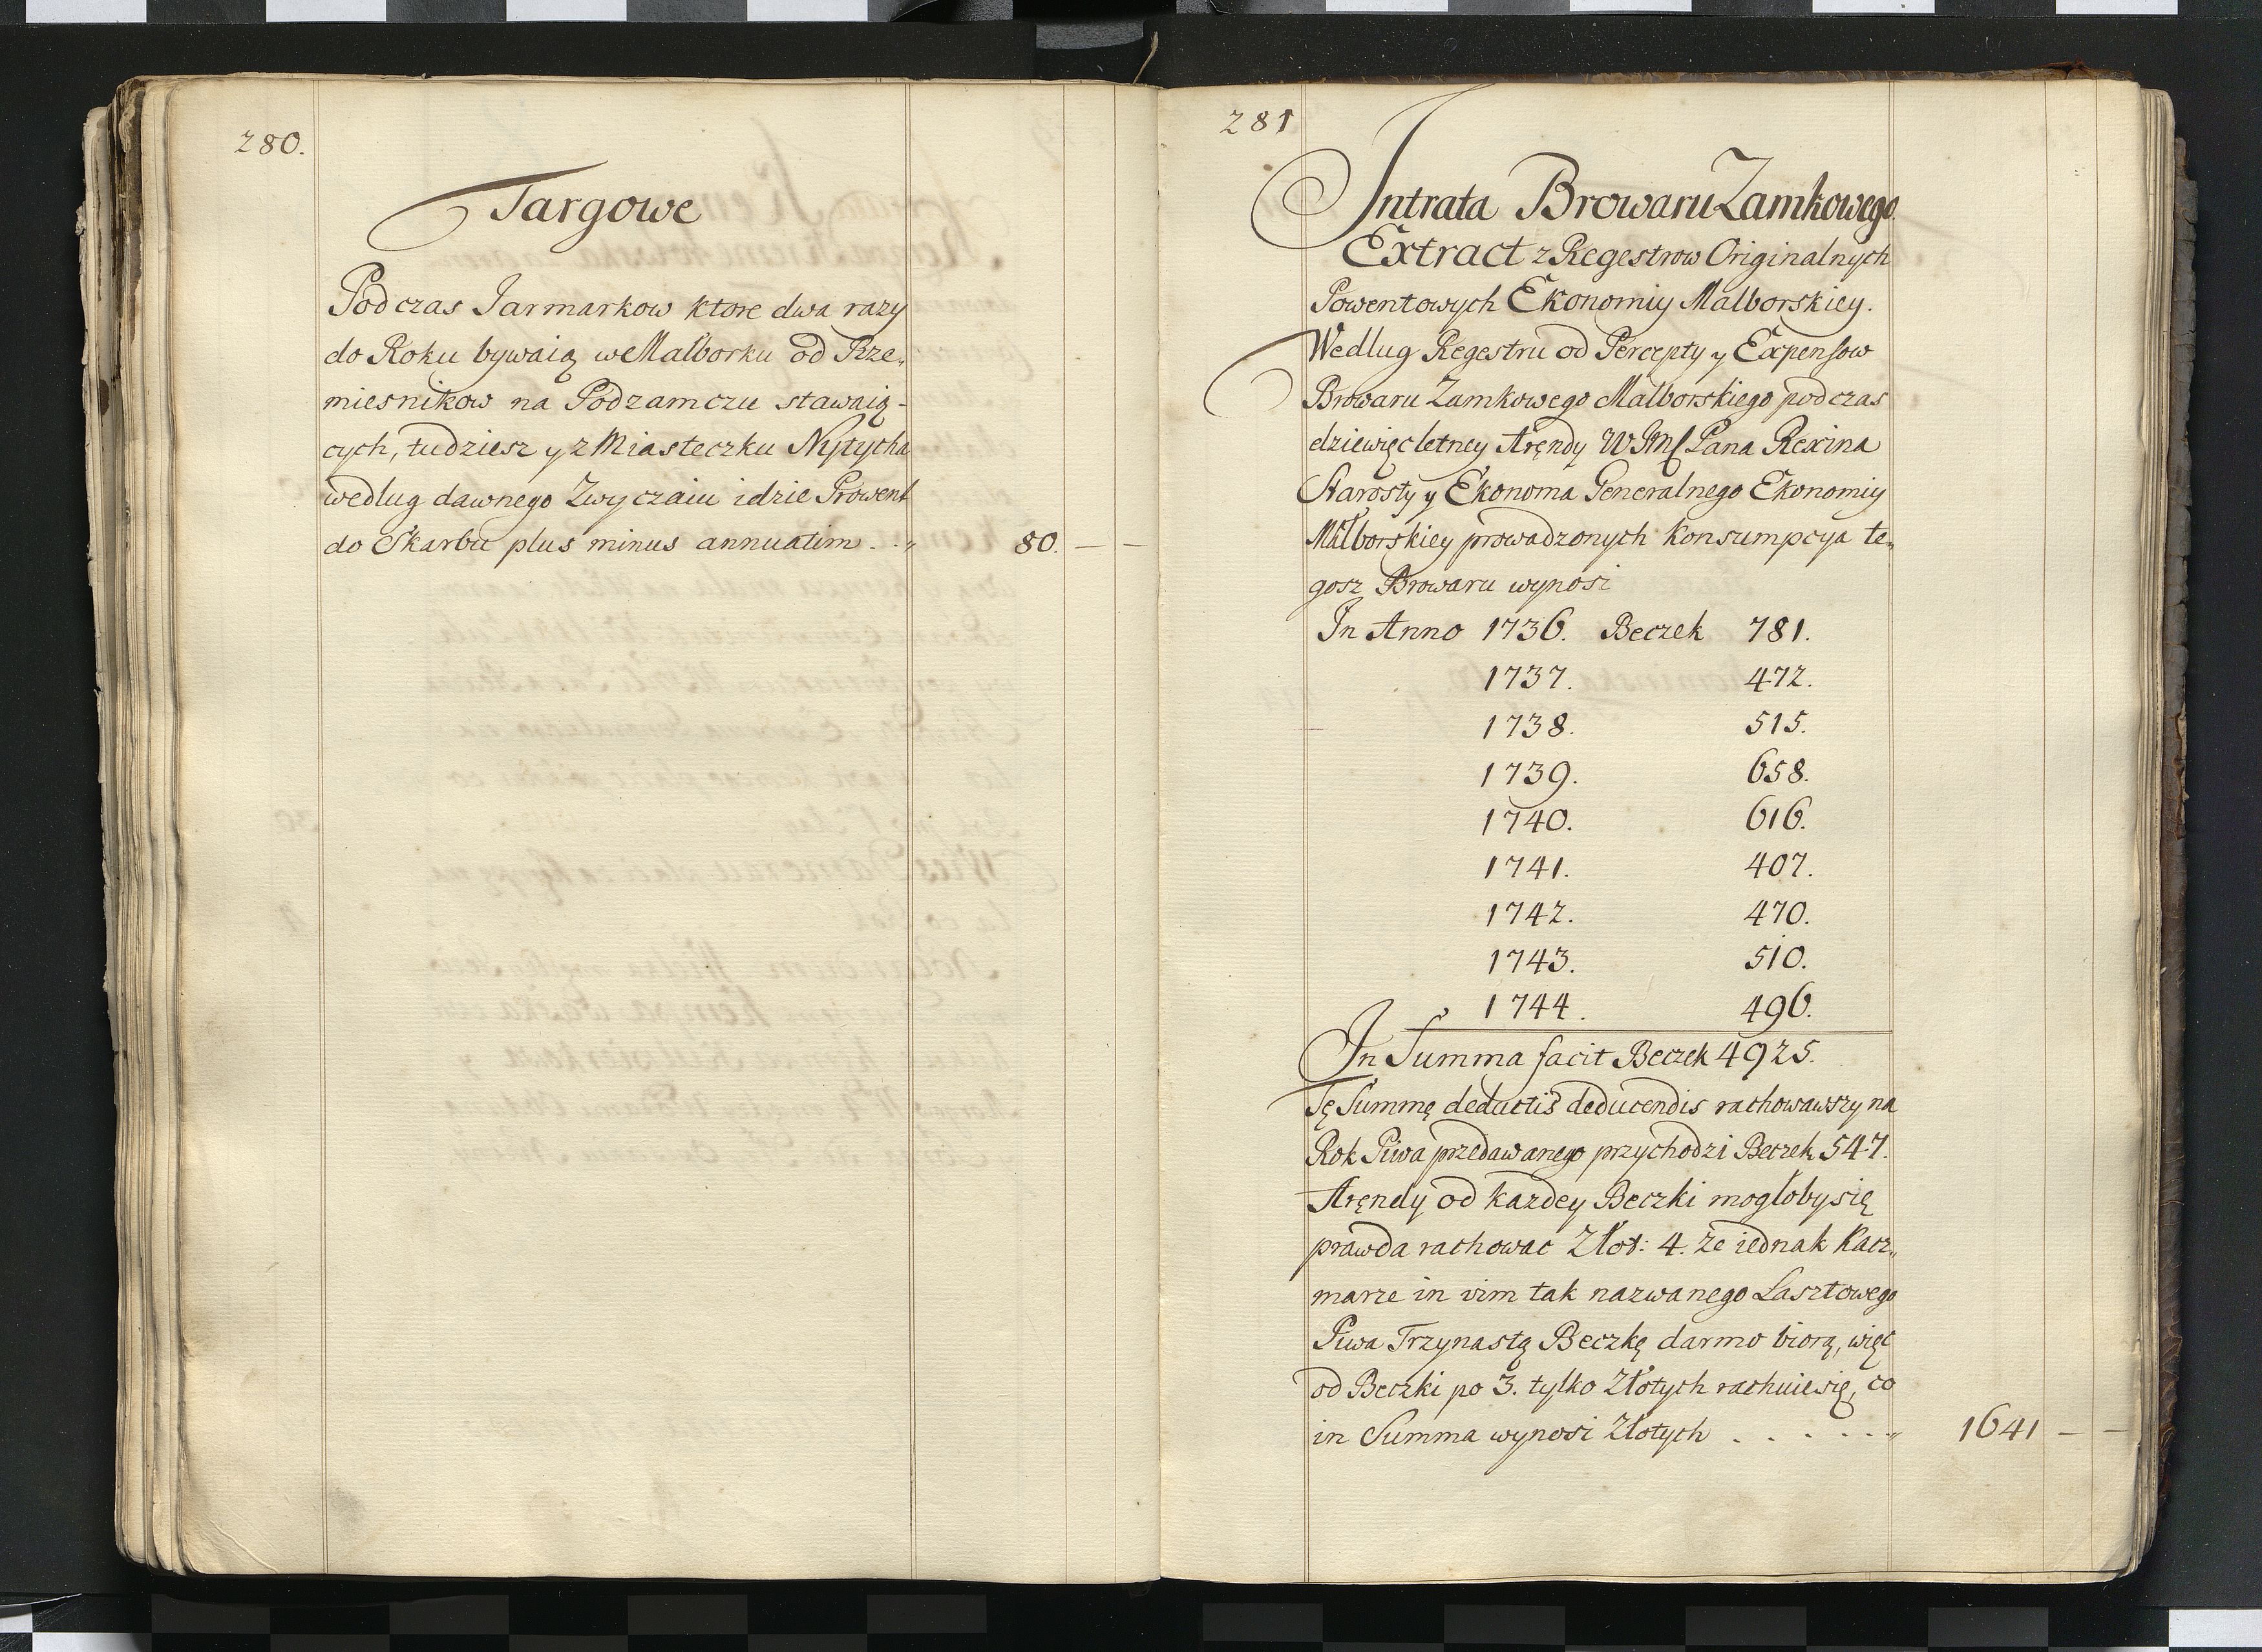 280.
Targowe
Podczas Jarmarkow ktore dwa razy
do Roku bywaią w Malborku od Rze„
miesnikow na Podzamczu stawaią-
cych, tudziesz y z Miasteczku Nytycha
według dawnego Zwyczaiu idzie Prowent
do Skarbu plus minus annuatim . . „ 80. — —
281
Intrata Browaru Zamkowego
Extract z Regestrow Originalnych
Powentowych Ekonomiy Malborskiey.
Wedlug Regestru od Percepty y Expensow
Browaru Zamkowego Malborskiego podczas
dziewięcletney Aręndy W JMſ Pana Rexina
Starosty y Ekonoma Generalnego Ekonomiy
Malborskiey prowadzonych Konsumpcya te„
gosz Browaru wynosi
In Anno 1736. Beczek 781.
1737. 472.
1738. 515.
1739. 658.
1740. 616.
1741. 407.
1742. 470.
1743. 510.
1744. 496.
In Summa facit Beczek 4925.
Tę Summę deductis deducendis rachowawszy na
Rok Piwa przedawanego przychodzi Beczek 547.
Aręndy od kazdey Beczki mogłoby się
prawda rachowac Złot: 4. ze iednak Kacz„
marze in vim tak nazwanego Lasztowego
Piwa Trzynastą Beczkę darmo biorą, więc
od Beczki po 3. tylko Złotych rachuie się, co
in Summa wynosi Złotych . . . . . . „ 1641 — —